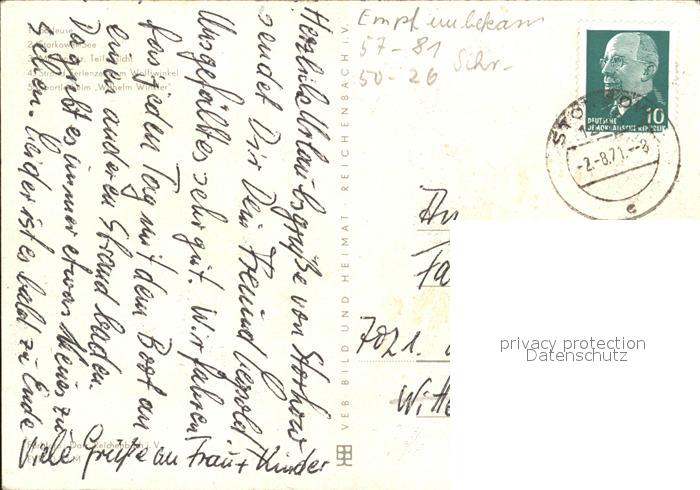 Herzliche Urlaubsgrüße von Storkow
sendet Dir Dein Freund Leopold
Uns gefällt es sehr gut. Wir fahren
fast jeden Tag mit dem Boot an
einen anderen Strand baden.
Da gibt es immer etwas Neues zu
sehen. Leider ist es bald zu Ende
Viele Grüße an Frau + Kinder
4. Strand Ferienzentrum Wolfswinkel
"Wilhelm
VEB BILD UND HEIMAT · REICHENBACH i. V.
Empf. unbekannt
57-81
50-26
DEUTSCHE
DEMOKRATISCHE REPUBLIK
10
-2.-8.71.-
e
An
Fa
7021.
Witte
privacy protection
Datenschutz